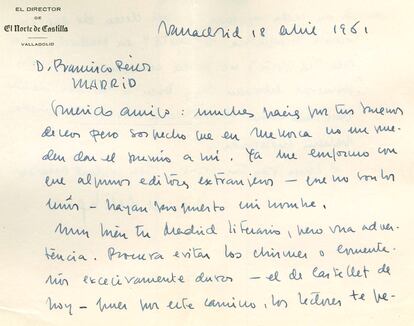 EL DIRECTOR
DE
El Norte de Castilla
VALLADOLID
Valladolid 18 abril 1961
D. Francisco Pérez
MADRID
Querido amigo: muchas gracias por tus buenos
deseos pero sospecho que en Menorca no me pue-
den dar el premio a mí. Ya me conformo con
que algunos editores extranjeros — que no son los
míos — hayan propuesto mi nombre.
Muy bien tu Madrid literario, pero una adver-
tencia. Procura evitar los chismes o comenta-
rios excesivamente duros — el de Castellet de
hoy — pues por este camino, los lectores te pe-